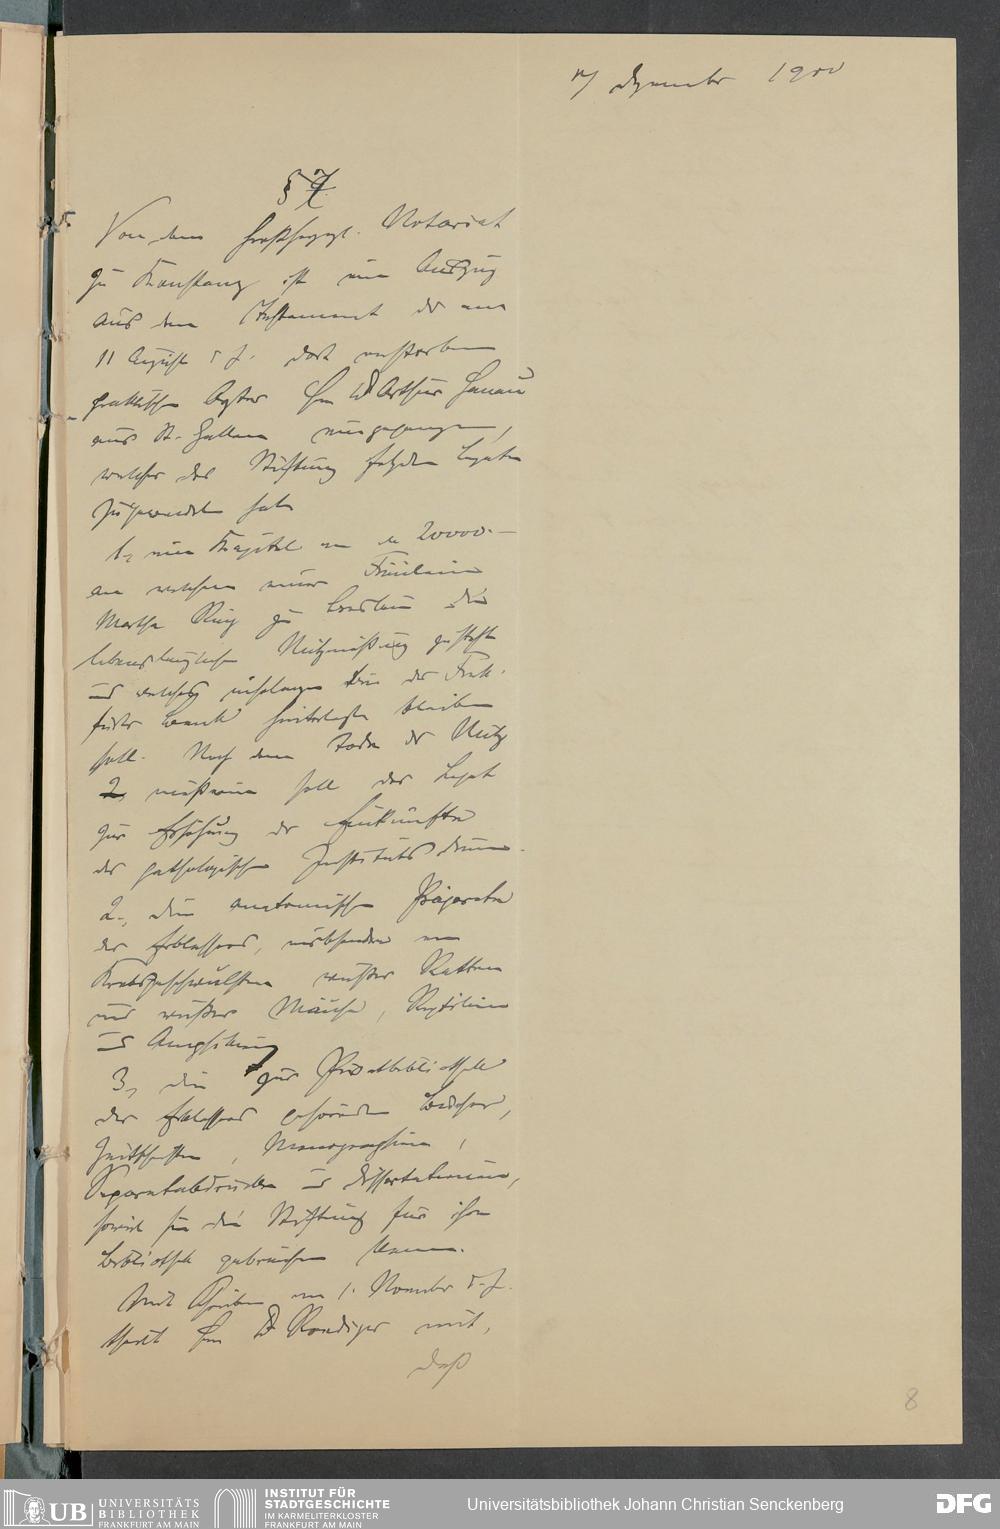 17 Dezember 1900
§ 7.
Von dem Großherzgl. Notariat
zu Konstanz ist ein Auszug
aus dem Testament des am
11 August d. J. dort verstorbenen
praktischen Arztes Hrn Dr Arthur Hanau
aus St. Gallen eingegangen,
welcher der Stiftung folgde Legate
zugewendet hat
1, ein Kapital von M 20000.—
an welchem einer Fräulein
Martha Ring zu Breslau die
lebenslängliche Nutznießung zusteht
und welches insolange bei der Frank-
furter Bank hinterlegt bleiben
soll. Nach dem Tode der Nutz
nießerin soll das Legat
zur Erhöhung der Einkünfte
des pathologischen Instituts dienen.
2., die anatomischen Präparate
des Erblassers, insbesondere von
Krebsgeschwülsten weißer Ratten
und weißer Mäuse, Reptilien
und Amphibien
3, die zur Privatbibliothek
des Erblassers gehörenden Bücher,
Zeitschriften, Monographien,
Separatabdrücke und Dissertationen,
soweit sie die Stiftung für ihre
Bibliothek gebrauchen kann.
Mit Schreiben vom 1. November d. J.
theilt Hrn Dr Roediger mit,
daß
8
UB UNIVERSITÄTS
BIBLIOTHEK
FRANKFURT AM MAIN
INSTITUT FÜR
STADTGESCHICHTE
IM KARMELITERKLOSTER
FRANKFURT AM MAIN
Universitätsbibliothek Johann Christian Senckenberg
DFG